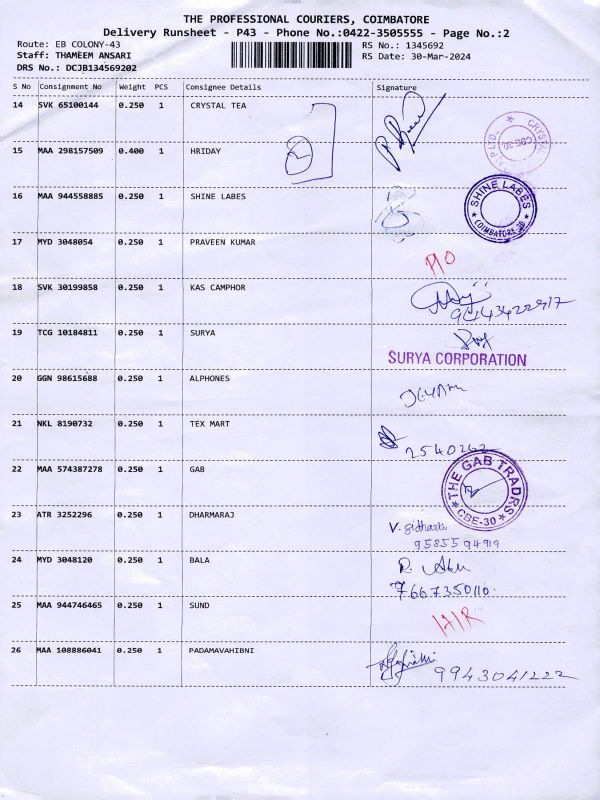 THE PROFESSIONAL COURIERS, COIMBATORE
Delivery Runsheet - P43 - Phone No.:0422-3505555 - Page No.:2
Route: EB COLONY-43 RS No.: 1345692
Staff: THAMEEM ANSARI RS Date: 30-Mar-2024
DRS No.: DCJB134569202
S No Consignment No Weight PCS Consignee Details Signature
14 SVK 65100144 0.250 1 CRYSTAL TEA
CRYSTAL
(P) LTD.
CBE-30
15 MAA 298157509 0.400 1 HRIDAY
2
16 MAA 944558885 0.250 1 SHINE LABES
SHINE LABES
COIMBATORE-30
17 MYD 3048054 0.250 1 PRAVEEN KUMAR
18 SVK 30199858 0.250 1 KAS CAMPHOR
19 TCG 10184811 0.250 1 SURYA
SURYA CORPORATION
20 GGN 98615688 0.250 1 ALPHONES
21 NKL 8190732 0.250 1 TEX MART
22 MAA 574387278 0.250 1 GAB
THE GAB TRADRS
CBE-30
23 ATR 3252296 0.250 1 DHARMARAJ
9585594919
24 MYD 3048120 0.250 1 BALA
7667350110.
25 MAA 944746465 0.250 1 SUND
26 MAA 108886041 0.250 1 PADAMAVAHIBNI
9943041222